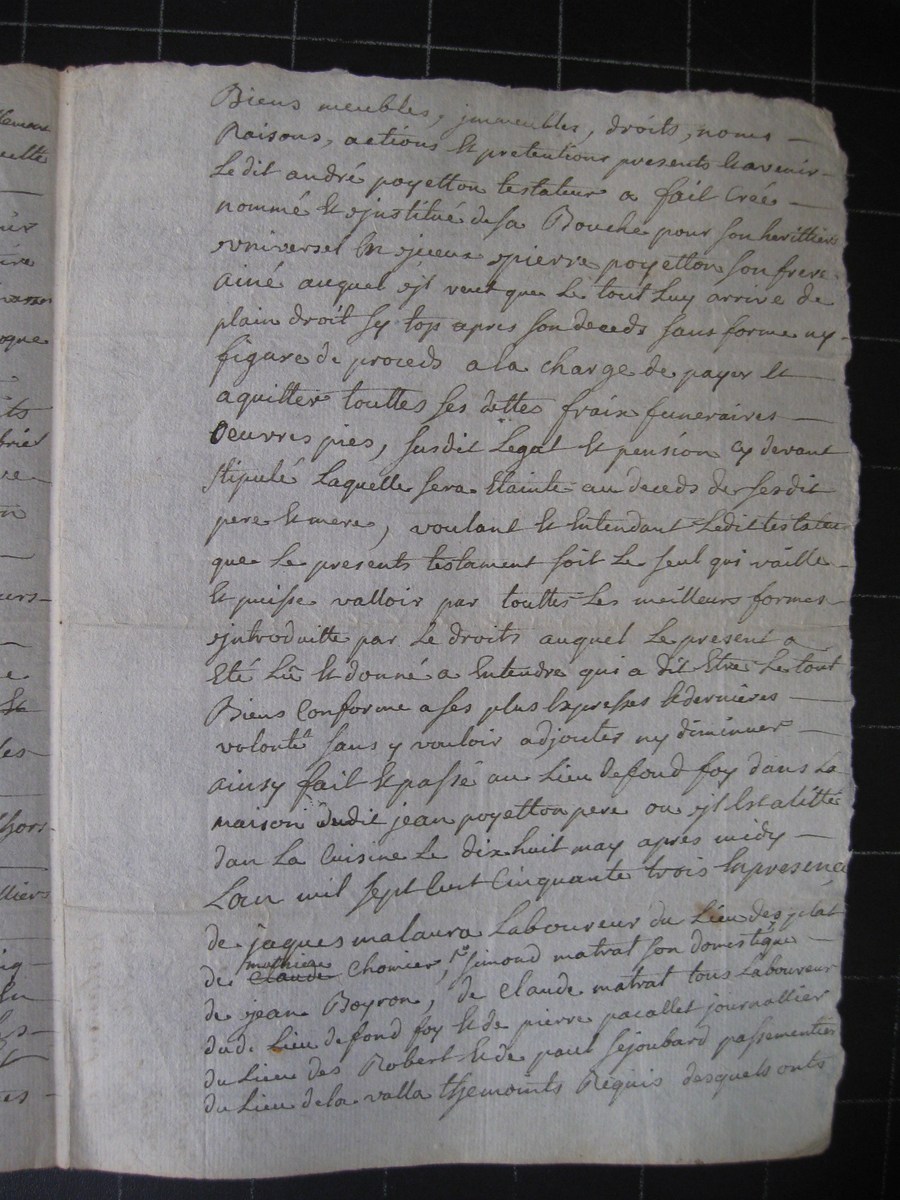 Biens meubles, jmmeubles, droits, noms
Raisons, actions Et pretentions presents Et avenir
Ledit andré poyetton testateur a fait Créé
nommé Et jnstitué de sa Bouche pour son herittier
vniversel pierre poyetton son frere
ainé auquel jl veut que Le tout Luy arrive de
plain droit sy top apres son deceds sans forme ny
figure de proceds a la charge de payer Et
aquitter touttes ses dettes fraix funeraires
Oeuvres pies, susdit Legat Et pension cy devant
stipulé Laquelle sera Etainte au deceds de sesdit
pere Et mere, voulant Et Entendant Ledit testateur
que Le presents testament soit Le seul qui vaille
Et puisse valloir par touttes Les meilleurs formes
jntroduitte par Le droits auquel Le present a
Eté Lû Et donné a Entendre qui a dit Etre Le tout
Biens Conforme a ses plus Expresses Et dernieres
volonté sans y vouloir adjouter ny diminuer
ainsy fait Et passé au Lieu de fond foy dans La
maison dudit jean poyetton pere ou jl Est alitté
dan La Cuisine Le dix huit may après midy
Lan mil sept Cent Cinquante trois En presence
de jaques malaura Laboureur du Lieu des
mathieu
de Claude Chomier, simond matrat son domestique
de jean Boyron, de Claude matrat tous Laboureur
dud. Lieu de fond foy Et de pierre pacallet journallier
du Lieu des Robert Et de paul sejoubard passementier
du Lieu de la valla themoints Requis desquels onts